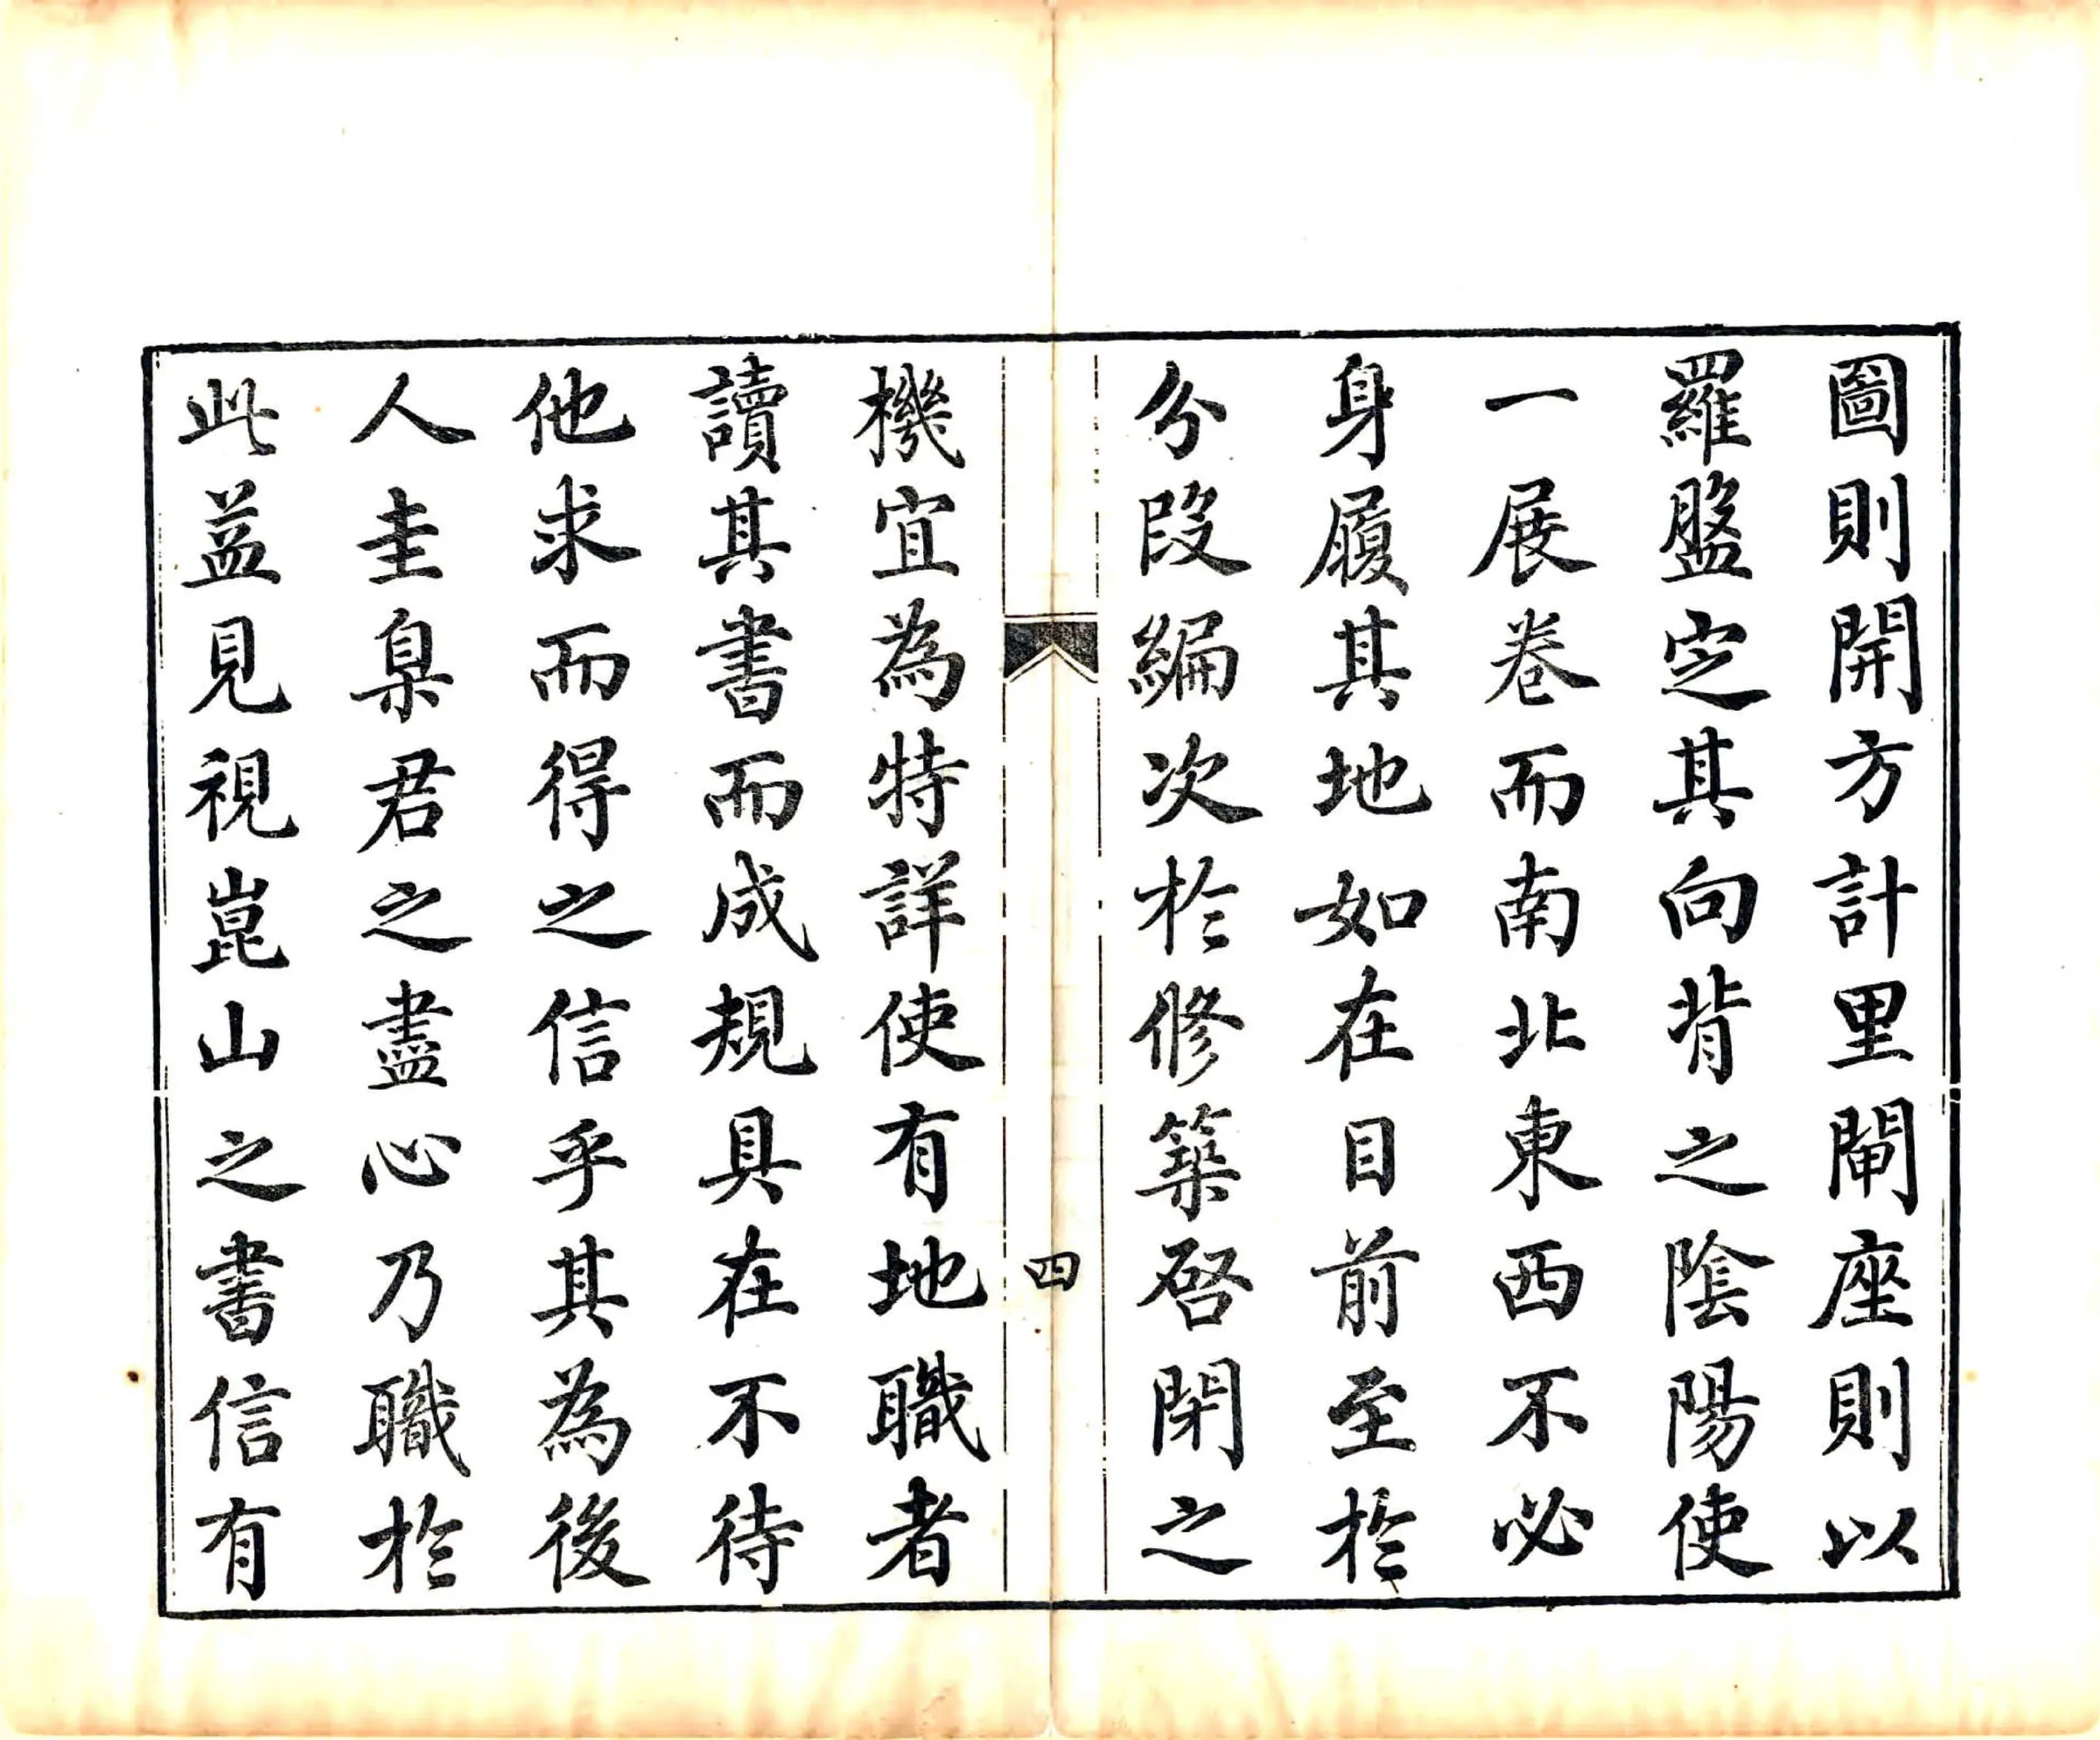 圖則開方計里閘座則以
羅盤定其向背之陰陽使
一展卷而南北東西不必
身履其地如在目前至於
分段編次於修築啓閉之
四
機宜為特詳使有地職者
讀其書而成規具在不待
他求而得之信乎其為後
人圭臬君之盡心乃職於
此益見視崑山之書信有